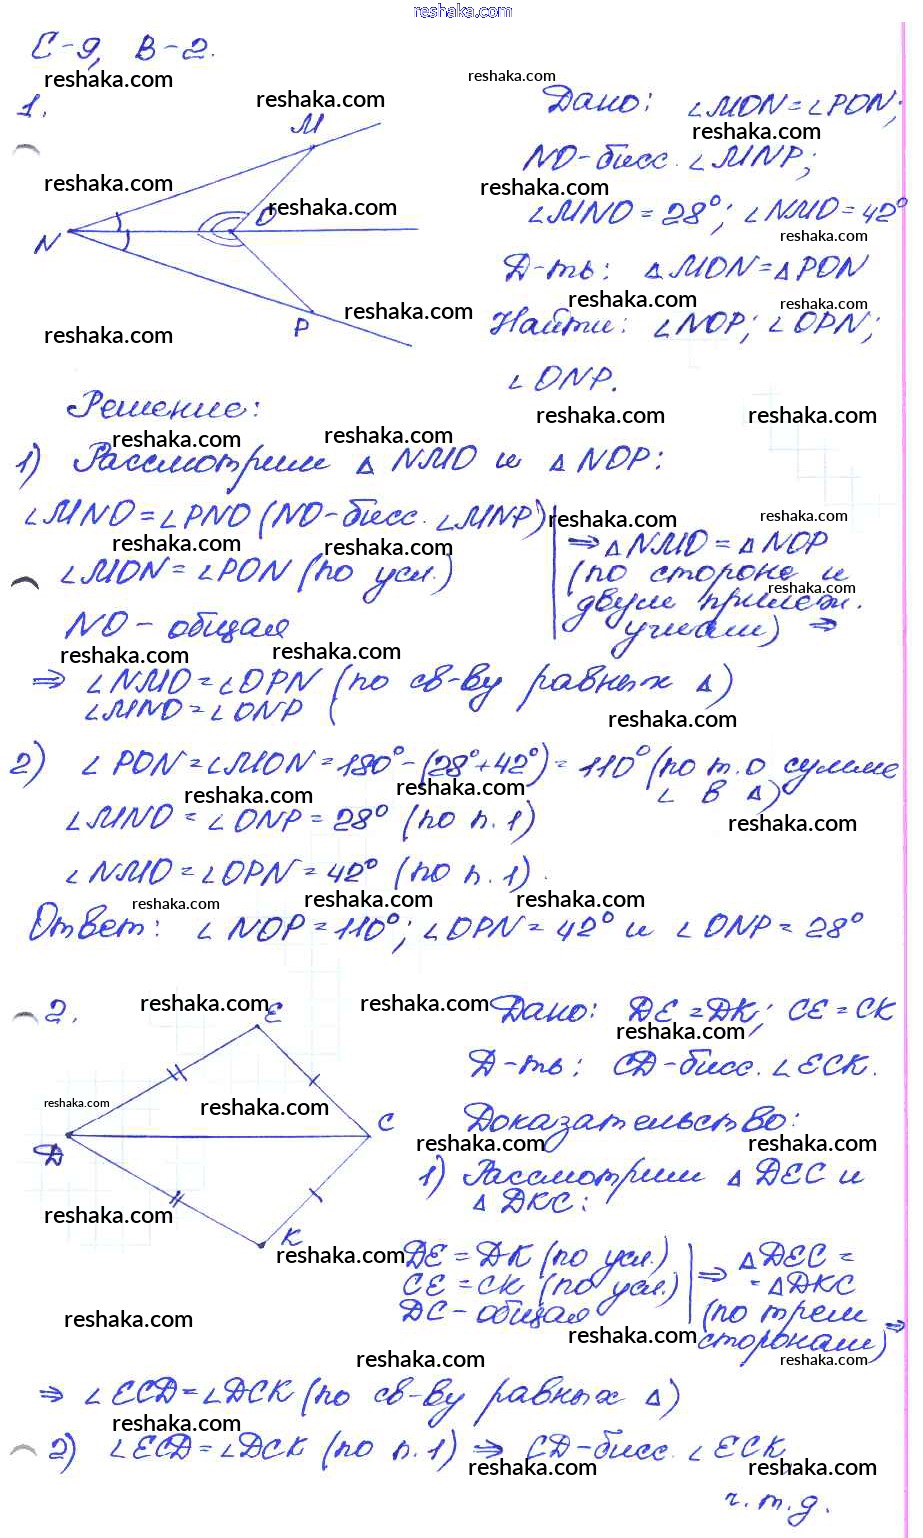 reshaka.com
С-9, В-2.
1.
M
N
O
P
Дано: ∠MON = ∠PON;
NO-бисс. ∠MNP;
∠MNO = 28°; ∠NMO = 42°
Д-ть: △MON = △PON
Найти: ∠NOP; ∠OPN;
∠ONP.
Решение:
1) Рассмотрим △NMO и △NOP:
∠MNO = ∠PNO (NO-бисс. ∠MNP)
∠MON = ∠PON (по усл.)
NO - общая
⇒ △NMO = △NOP
(по стороне и
двум прилеж.
углам) ⇒
⇒ ∠NMO = ∠OPN (по св-ву равных △)
∠MNO = ∠ONP (
2) ∠PON = ∠MON = 180° - (28° + 42°) = 110° (по т. о сумме
∠ в △)
∠MNO = ∠ONP = 28° (по п. 1)
∠NMO = ∠OPN = 42° (по п. 1).
Ответ: ∠NOP = 110°; ∠OPN = 42° и ∠ONP = 28°
2.
E
D
C
K
Дано: DE = DK; CE = CK
Д-ть: CD-бисс. ∠ECK.
Доказательство:
1) Рассмотрим △DEC и
△DKC:
DE = DK (по усл.)
CE = CK (по усл.)
DC - общая
⇒ △DEC =
= △DKC
(по трем
сторонам) ⇒
⇒ ∠ECD = ∠DCK (по св-ву равных △)
2) ∠ECD = ∠DCK (по п. 1) ⇒ CD-бисс. ∠ECK,
ч.т.д.